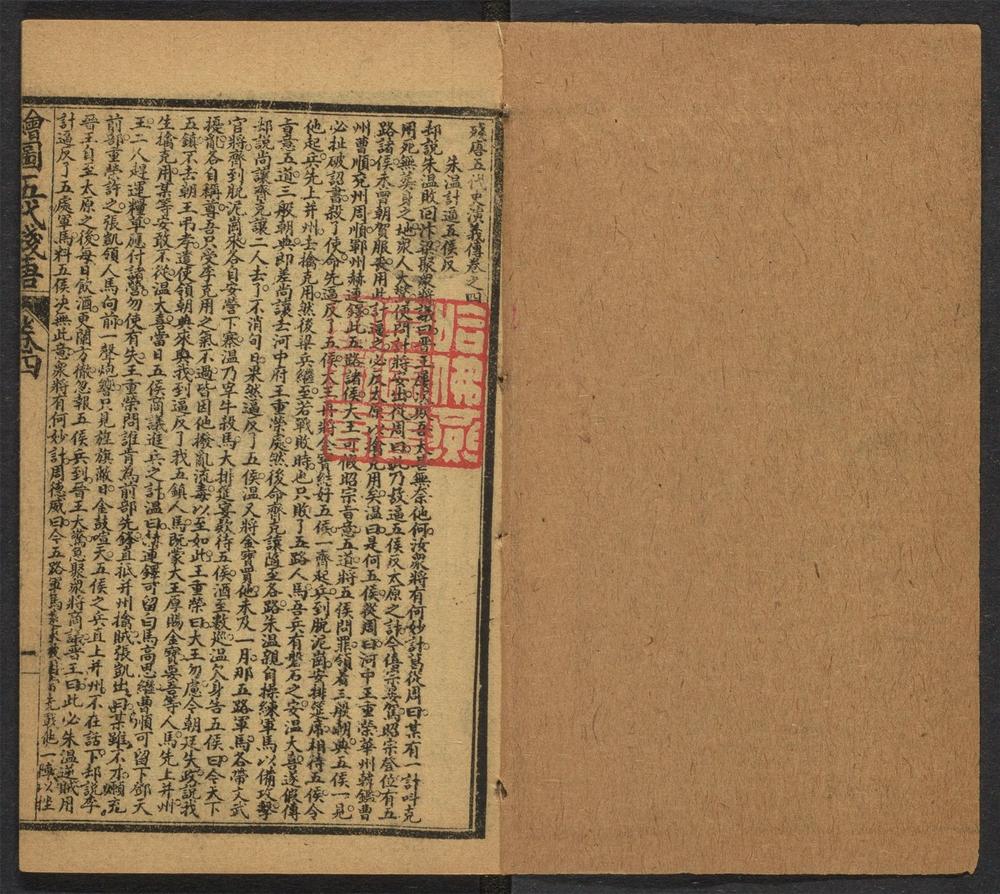 殘唐五代史演義傳卷之四
朱温計逼五侯反
却說朱温敗回汴梁聚衆將議曰晋王屢次敗吾大無奈他何汝衆將有何妙計葛從周曰某有一計呌克
用死無葬身之地衆人大驚便問計將安出從周曰此乃故逼五侯反太原之計今僖宗晏駕昭宗登位有五
路諸侯不曾朝賀服喪用此計逼之必反太原以擒克用矣温曰是何五侯從周曰河中王重榮華州韓鑑曹
州曹順兖州周順鄆州赫連鐸此五路諸侯大王可假昭宗旨意五道將五侯問罪領着三般朝典五侯一見
必扯破認書殺了使命先逼反了五侯大王再將金寳結好五侯一齊起兵到脫泥崗安排筵席相待五侯令
他起兵先上并州去擒克用然後梁兵繼至若戰敗時也只敗了五路人馬吾兵有磐石之安温大喜遂假傳
旨意五道三般朝典即差尚讓去河中府王重榮處然後命齊克讓隨至各路朱温親自操練軍馬以備攻擊
却說尚讓齊克讓二人去了不消旬日果然逼反了五侯温又將金寳買他未及一月那五路軍馬各帶文武
官將齊到脫泥崗來各自安營下寨温乃宰牛殺馬大排筵宴欵待五侯酒至數廵温欠身告五侯曰今天下
擾攘各自稱尊吾只受李克用之氣不過皆因他撥亂流毒以至如此王重榮曰大王勿慮今朝廷失政說我
五鎮不去朝王弔孝遣使領朝典來與我到逼反了我五鎮人馬旣蒙大王厚賜金寳要吾等人馬先上并州
生擒克用某等安敢不從温大喜當日五侯商議進兵之計温曰赫連鐸可留曰馬高思繼曹順可留下鄧天
王二八趕運糧草應付諸營勿使有失王重榮問誰肯為前部先鋒直抵并州擒賊張凱出曰某雖不才願充
前部重榮許之張凱領人馬向前一聲炮響只見旌旗敵日金鼓喧天五侯之兵直上并州不在話下却說李
晋王自至太原之後每日飲酒更闌方徹忽報五侯兵到晋王大驚急聚衆將商議晋王曰此必朱温逆賊用
計逼反了五處軍馬料五侯决無此意衆將有何妙計周德威曰今五路軍馬先戰他一陣以
繪圖五代殘唐
卷四
一
哈佛燕